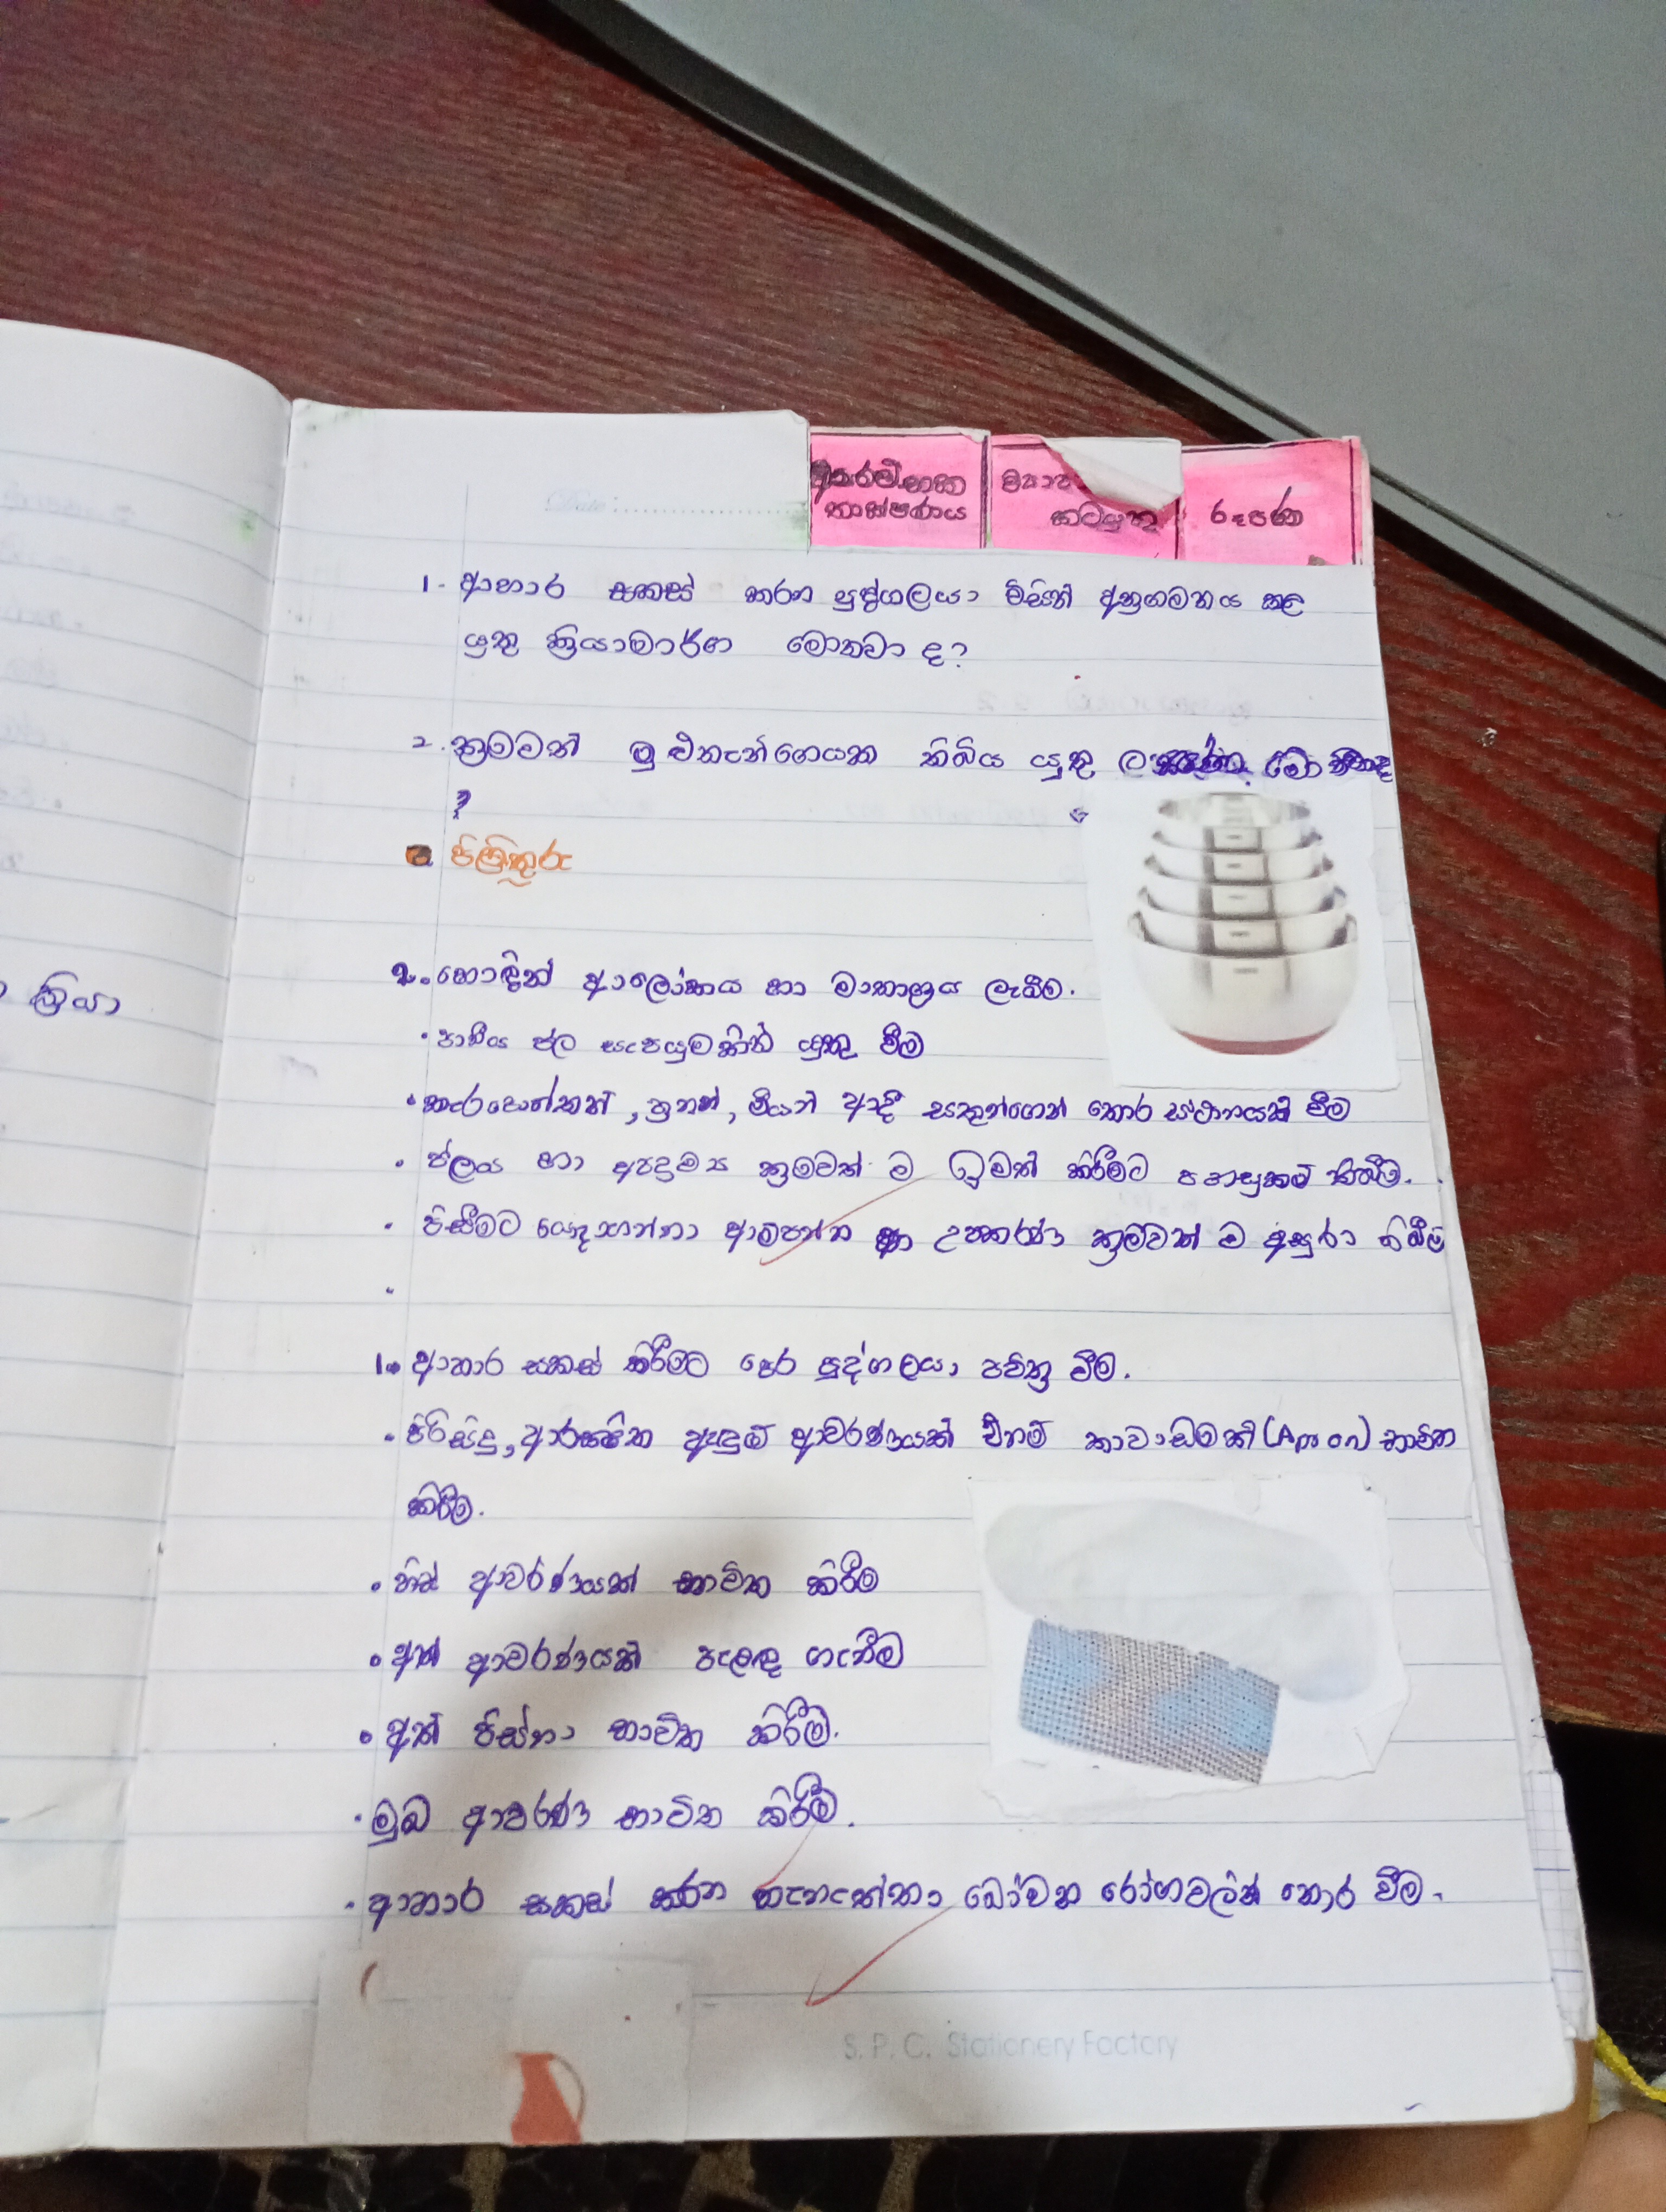 Date :
තාක්ෂණය
කටයුතු
රූපණ
1. ආහාර සකස් කරන පුද්ගලයා විසින් අනුගමනය කළ
යුතු ක්‍රියාමාර්ග මොනවා ද?
2. ක්‍රමවත් මුළුතැන්ගෙයක තිබිය යුතු
?
පිළිතුරු
ක්‍රියා
2. හොඳින් ආලෝකය හා වාතාශ්‍රය ලැබීම.
• පානීය ජල සැපයුමකින් යුතු වීම
• කැරපොත්තන්, හූනන්, මීයන් ආදී සතුන්ගෙන් තොර ස්ථානයක් වීම
• ජලය හා අපද්‍රව්‍ය ක්‍රමවත් ම ඉවත් කිරීමට පහසුකම් තිබීම.
• පිසීමට යොදාගන්නා ආම්පන්න හා උපකරණ ක්‍රමවත් ම අසුරා තිබීම
•
1. ආහාර සකස් කිරීමට පෙර පුද්ගලයා පවිත්‍ර වීම.
• පිරිසිදු, ආරක්ෂිත ඇඳුම් ආවරණයක් එනම් කාවාඩමක් (Apron) භාවිත
කිරීම.
• හිස් ආවරණයක් භාවිත කිරීම
• අත් ආවරණයක් පැළඳ ගැනීම
• අත් පිස්නා භාවිත කිරීම.
• මුඛ ආවරණ භාවිත කිරීම.
• ආහාර සකස් කරන තැනැත්තා බෝවන රෝගවලින් තොර වීම.
S. P. C. Stationery Factory